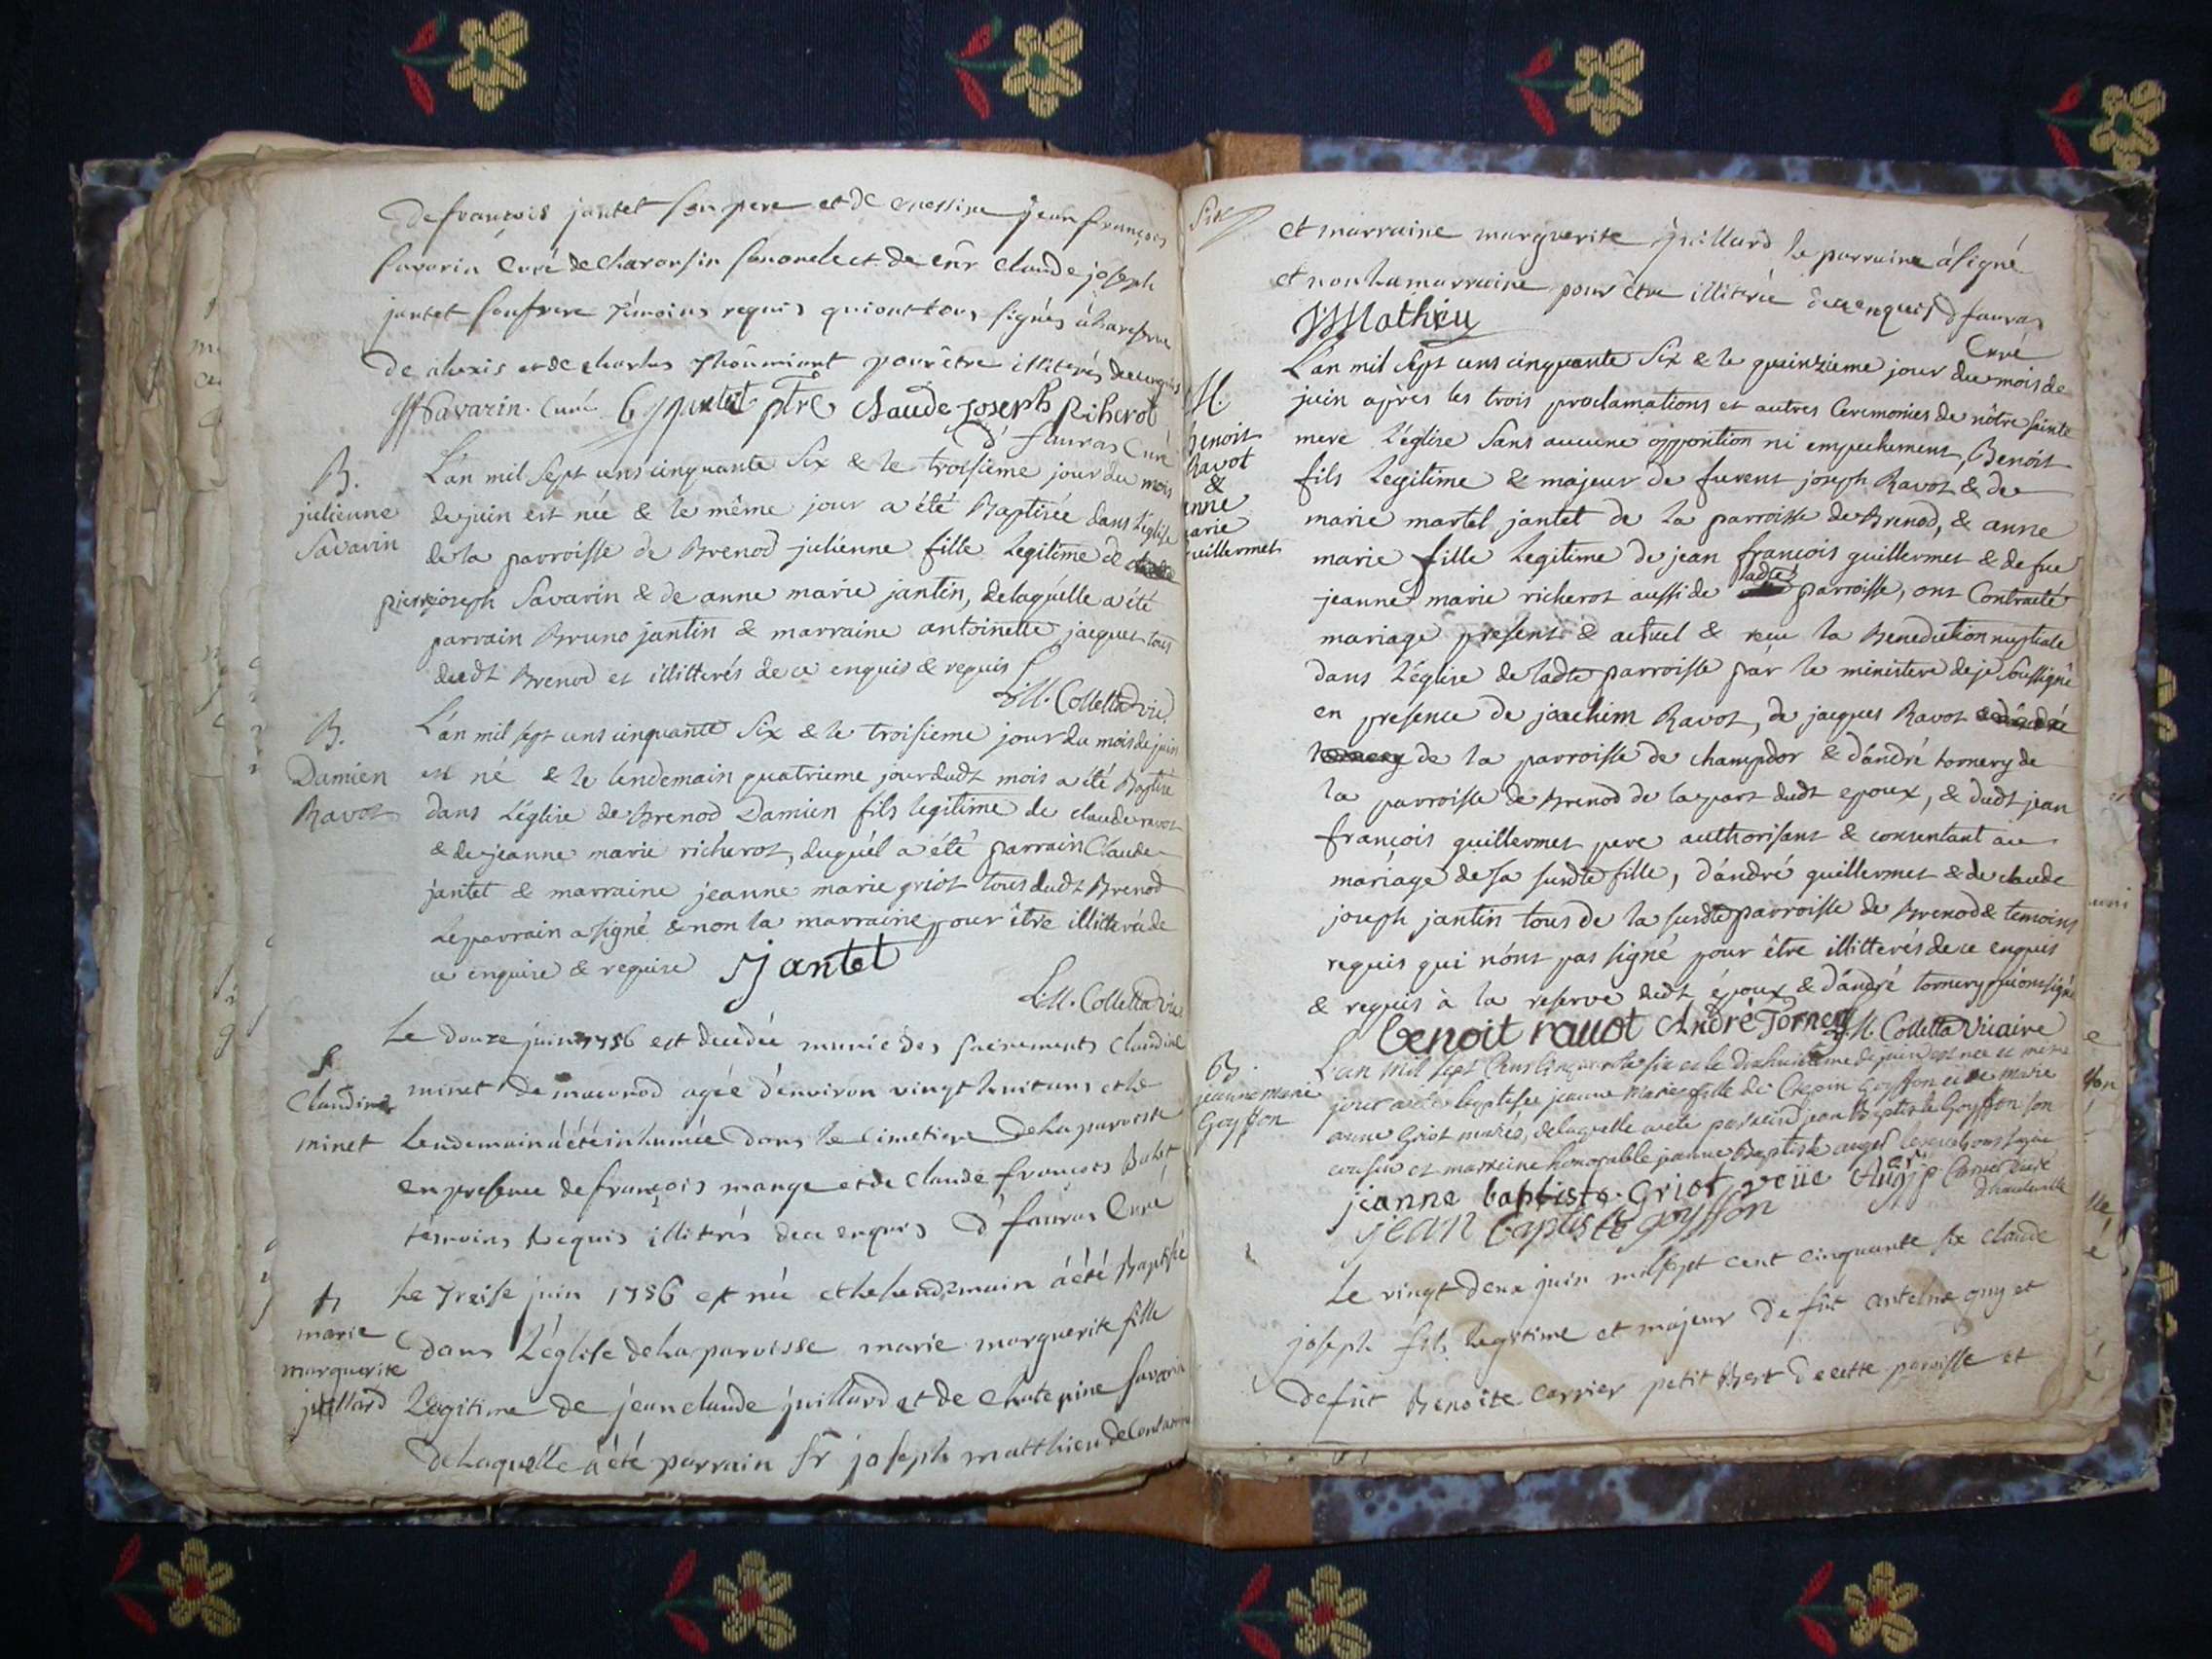 de françois jantet son pere et de messire jean françois
savarin Curé de charansin son oncle et de Claude joseph
jantet son frere témoins requis qui ont tous signés à la reserve
de alexis et de charles pour être illiterés de ce enquis
Savarin. Curé Jantet ptre Claude Joseph Richerot
d'fauvas Curé
B.
julienne
Savarin
L'an mil sept cens cinquante six & le troisieme jour du mois
de juin est née & le même jour a été Baptisée dans l'église
de la parroisse de Brenod julienne fille legitime de
pierre joseph Savarin & de anne marie jantin, delaquélle a été
parrain Bruno jantin & marraine antoinette jacquet tous
dudt Brenod et illitterés de ce enquis & requis
L.M. Colletta vic.
B.
Damien
Ravot
L'an mil sept cens cinquante six & le troisieme jour du mois de juin
est né & le lendemain quatrieme jour dudt mois a été Baptisé
dans L'église de Brenod Damien fils legitime de claude ravot
& de jeanne marie richerot, duquél a été parrain Claude
jantet & marraine jeanne marie griot tous dudt Brenod
Le parrain a signé & non la marraine pour être illitterée de
ce enquise & requise Jantet
L.M. Colletta Vic
S
Claudine
minet
Le douze juin 1756 est decedée munie des sacrements Claudine
minet de maconod agée d'environ vingt huit ans et le
lendemain a été inhumée dans le Cimetiere de la paroisse
en presence de françois mange et de Claude françois Balet
témoins requis illiterés de ce enquis d'fauvas Curé
B
marie
marguerite
juillard
Le Treise juin 1756 est née et le lendemain a été Baptisée
dans L'église de la paroisse marie marguerite fille
Legitime de jean claude juillard et de Chaterine savarin
de laquelle a été parrain Sr joseph matthieu de
Six
et marraine marguerite juillard le parraine a signé
et non la marraine pour être illiterée de ce enquis d'fauvas
Mathieu Curé
M.
benoit
Ravot
&
anne
marie
guillermet
L'an mil sept cens cinquante Six & le quinzieme jour du mois de
juin après les trois proclamations et autres Ceremonies de nôtre sainte
mere L'église sans aucune opposition ni empechement, Benoit
fils legitime & majeur de furent joseph Ravot & de
marie martel jantet de la parroisse de Brenod, & anne
marie fille legitime de jean françois guillermet & de fue
jeanne marie richerot aussi de ladte parroisse, ont Contracté
mariage present & actuel & recu la Benediction nuptiale
dans L'église de ladte parroisse par le ministere de je soussigné
en presence de joachim Ravot, de jacques Ravot
de la parroisse de champdor & d'andré tornery de
la parroisse de Brenod de la part dudt epoux, & dudt jean
françois guillermet pere authorisant & consentant au
mariage de sa susdte fille, d'andré guillermet & de claude
joseph jantin tous de la susdte parroisse de Brenod & temoins
requis qui n'ont pas signé pour être illitterés de ce enquis
& requis à la reserve dudt époux & d'andré tornery qui ont signé
benoit rauot André Tornery L.M. Colletta Vicaire
B.
jeanne marie
Goyffon
L'an mil sept Cens Cinquante six et le dixhuitieme de juin est nee et meme
jour a ete baptisée jeanne marie fille de Crepin Goyffon et de marie
anne Griot mariés, delaquelle a ete parrain jean Baptiste Goyffon son
cousin et marraine honorable jeanne Baptiste auger lesquels ont signé
jeanne baptiste Griot veüe Auger Carrier Curé
d'hauteville
jean baptiste goyffon
Le vingt deux juin mil sept cent cinquante six claude
joseph fils legitime et majeur de fût antelme guy et
de fût Benoite Carrier petit Bert de cette paroisse et